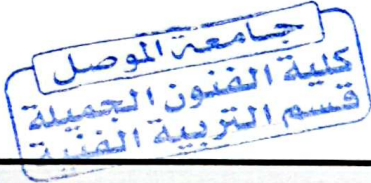 جامعة الموصل
كلية الفنون الجميلة
قسم التربية الفنية